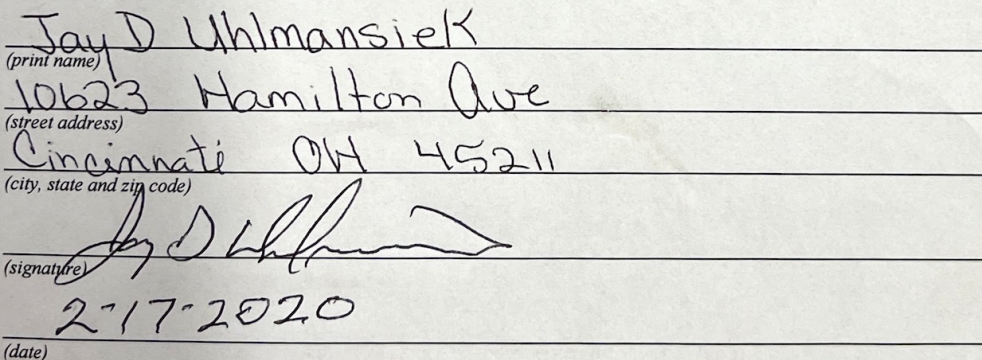 Jay D Uhlmansiek
(print name)
10623 Hamilton Ave
(street address)
Cincinnati OH 45211
(city, state and zip code)
Jay D Uhlmansiek
(signature)
2-17-2020
(date)